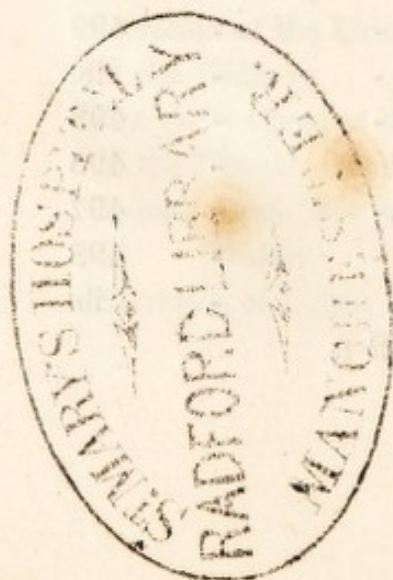 ST. MARY'S HOSPITAL
RADFORD LIBRARY
MANCHESTER.